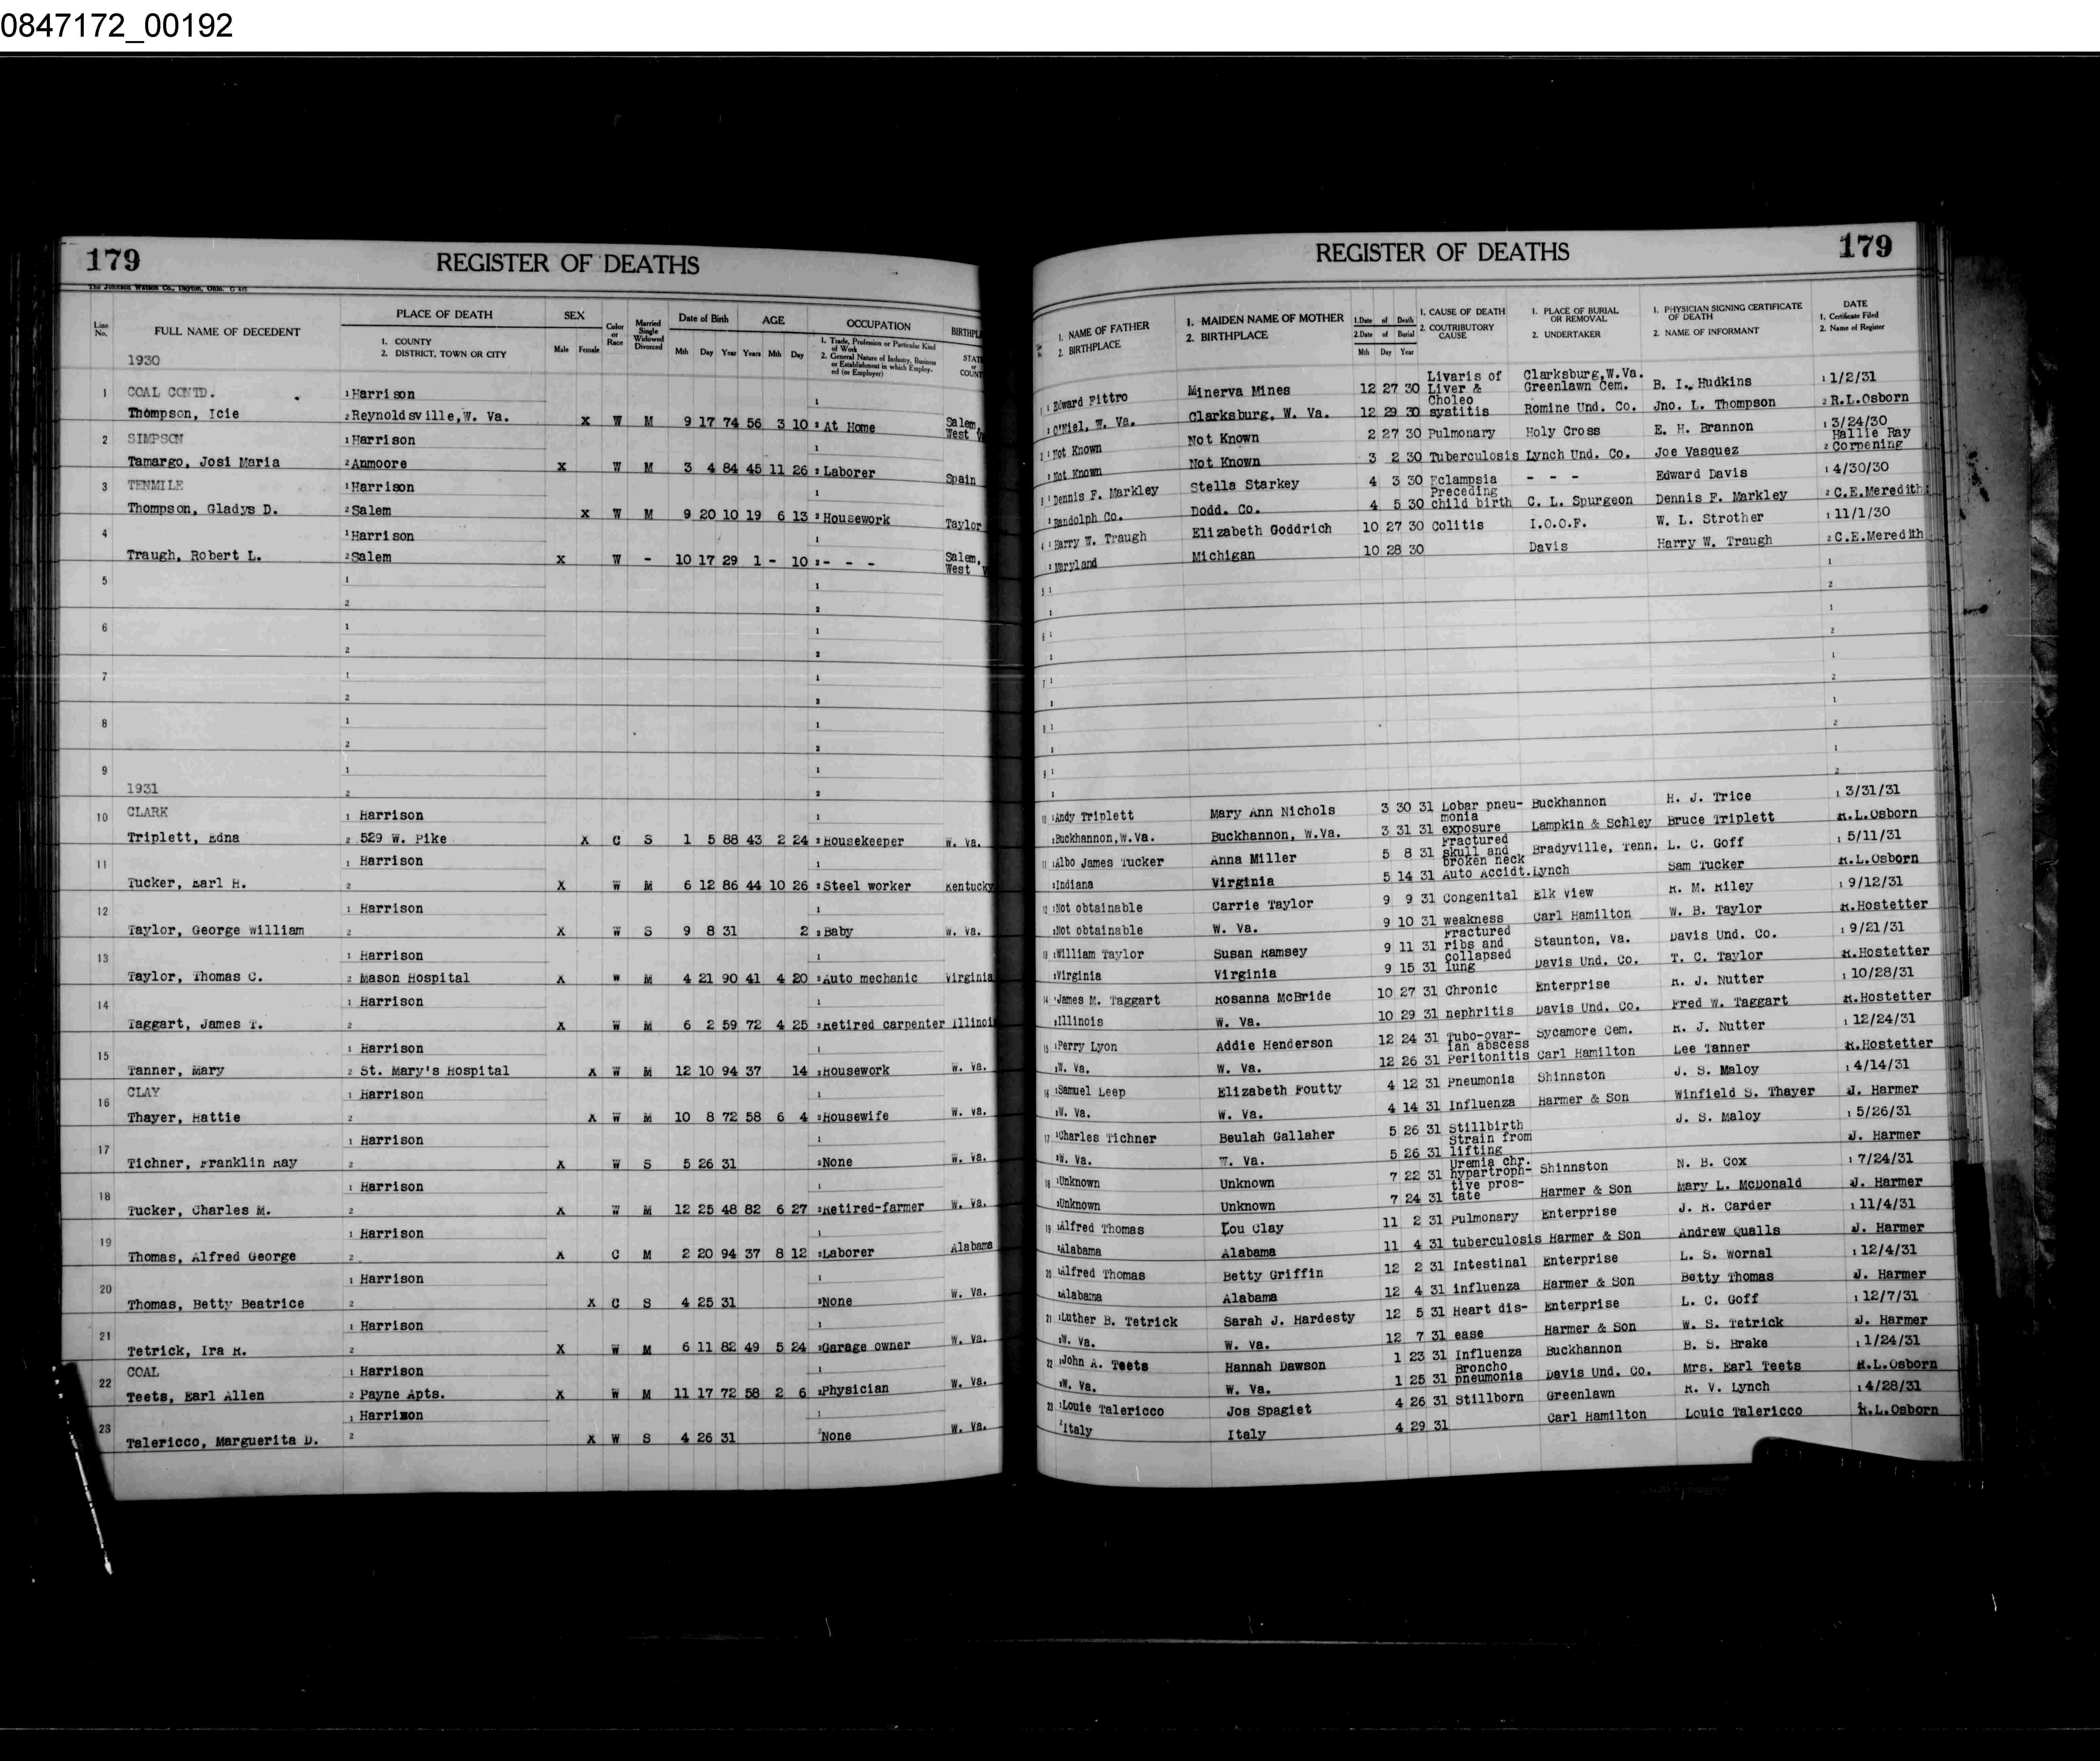 0847172_00192
179 REGISTER OF DEATHS
The Johnson Watson Co., Dayton, Ohio.
Line No. FULL NAME OF DECEDENT PLACE OF DEATH 1. COUNTY 2. DISTRICT, TOWN OR CITY SEX Male Female Color or Race Married Single Widowed Divorced Date of Birth Mth Day Year AGE Years Mth Day OCCUPATION 1. Trade, Profession or Particular Kind of Work 2. General Nature of Industry, Business or Establishment in which Employed (or Employer)
1930
1 COAL CONTD. 1 Harrison 1
Thompson, Icie 2 Reynoldsville, W. Va. X W M 9 17 74 56 3 10 2 At Home Salem, West
2 SIMPSON 1 Harrison 1
Tamargo, Josi Maria 2 Anmoore X W M 3 4 84 45 11 26 2 Laborer Spain
3 TENMILE 1 Harrison 1
Thompson, Gladys D. 2 Salem X W M 9 20 10 19 6 13 2 Housework Taylor
4 1 Harrison 1
Traugh, Robert L. 2 Salem X W - 10 17 29 1 - 10 2 - - - Salem, West
5 1 1
2 2
6 1 1
2 2
7 1 1
2 2
8 1 1
2 2
9 1 1
1931 2 2
10 CLARK 1 Harrison 1
Triplett, Edna 2 529 W. Pike X C S 1 5 88 43 2 24 2 Housekeeper W. Va.
11 1 Harrison 1
Tucker, Earl H. 2 X W M 6 12 86 44 10 26 2 Steel worker Kentucky
12 1 Harrison 1
Taylor, George William 2 X W S 9 8 31 2 2 Baby W. Va.
13 1 Harrison 1
Taylor, Thomas C. 2 Mason Hospital X W M 4 21 90 41 4 20 2 Auto mechanic Virginia
14 1 Harrison 1
Taggart, James T. 2 X W M 6 2 59 72 4 25 2 Retired carpenter Illinoi
15 1 Harrison 1
Tanner, Mary 2 St. Mary's Hospital X W M 12 10 94 37 14 2 Housework W. Va.
16 CLAY 1 Harrison 1
Thayer, Hattie 2 X W M 10 8 72 58 6 4 2 Housewife W. Va.
17 1 Harrison 1
Tichner, Franklin Ray 2 X W S 5 26 31 2 None W. Va.
18 1 Harrison 1
Tucker, Charles M. 2 X W M 12 25 48 82 6 27 2 Retired-farmer W. Va.
19 1 Harrison 1
Thomas, Alfred George 2 X C M 2 20 94 37 8 12 2 Laborer Alabama
20 1 Harrison 1
Thomas, Betty Beatrice 2 X C S 4 25 31 2 None W. Va.
21 1 Harrison 1
Tetrick, Ira R. 2 X W M 6 11 82 49 5 24 2 Garage owner W. Va.
22 COAL 1 Harrison 1
Teets, Earl Allen 2 Payne Apts. X W M 11 17 72 58 2 6 2 Physician W. Va.
23 1 Harrison 1
Talericco, Marguerita D. 2 X W S 4 26 31 2 None W. Va.
REGISTER OF DEATHS 179
1. NAME OF FATHER 2. BIRTHPLACE 1. MAIDEN NAME OF MOTHER 2. BIRTHPLACE 1. Date of Death 2. Date of Burial Mth Day Year 1. CAUSE OF DEATH 2. COUTRIBUTORY CAUSE 1. PLACE OF BURIAL OR REMOVAL 2. UNDERTAKER 1. PHYSICIAN SIGNING CERTIFICATE OF DEATH 2. NAME OF INFORMANT DATE 1. Certificate Filed 2. Name of Register
1 1 Edward Pittro Minerva Mines 12 27 30 Livaris of Liver & Clarksburg, W.Va. Greenlawn Cem. B. I. Hudkins 1 1/2/31
2 O'Niel, W. Va. Clarksburg, W. Va. 12 29 30 Choleo systitis Romine Und. Co. Jno. L. Thompson 2 R.L.Osborn
2 1 Not Known Not Known 2 27 30 Pulmonary Holy Cross E. H. Brannon 1 3/24/30
2 Not Known Not Known 3 2 30 Tuberculosis Lynch Und. Co. Joe Vasquez 2 Hallie Ray Corpening
3 1 Dennis F. Markley Stella Starkey 4 3 30 Eclampsia - - - Edward Davis 1 4/30/30
2 Randolph Co. Dodd. Co. 4 5 30 Preceding child birth C. L. Spurgeon Dennis F. Markley 2 C.E.Meredith
4 1 Harry W. Traugh Elizabeth Goddrich 10 27 30 Colitis I.O.O.F. W. L. Strother 1 11/1/30
2 Maryland Michigan 10 28 30 Davis Harry W. Traugh 2 C.E.Meredith
5 1 1
2 2
6 1 1
2 2
7 1 1
2 2
8 1 1
2 2
9 1 1
2 2
10 1 Andy Triplett Mary Ann Nichols 3 30 31 Lobar pneumonia Buckhannon H. J. Trice 1 3/31/31
2 Buckhannon, W.Va. Buckhannon, W.Va. 3 31 31 exposure Lampkin & Schley Bruce Triplett R.L.Osborn
11 1 Albo James Tucker Anna Miller 5 8 31 Fractured skull and broken neck Bradyville, Tenn. L. C. Goff 1 5/11/31
2 Indiana Virginia 5 14 31 Auto Accidt. Lynch Sam Tucker R.L.Osborn
12 1 Not obtainable Carrie Taylor 9 9 31 Congenital Elk View R. M. Riley 1 9/12/31
2 Not obtainable W. Va. 9 10 31 weakness Carl Hamilton W. B. Taylor R.Hostetter
13 1 William Taylor Susan Ramsey 9 11 31 Fractured ribs and Staunton, Va. Davis Und. Co. 1 9/21/31
2 Virginia Virginia 9 15 31 collapsed lung Davis Und. Co. T. C. Taylor R.Hostetter
14 1 James M. Taggart Rosanna McBride 10 27 31 Chronic Enterprise R. J. Nutter 1 10/28/31
2 Illinois W. Va. 10 29 31 nephritis Davis Und. Co. Fred W. Taggart R.Hostetter
15 1 Perry Lyon Addie Henderson 12 24 31 Tubo-ovarian abscess Sycamore Cem. R. J. Nutter 1 12/24/31
2 W. Va. W. Va. 12 26 31 Peritonitis Carl Hamilton Lee Tanner R.Hostetter
16 1 Samuel Leep Elizabeth Foutty 4 12 31 Pneumonia Shinnston J. S. Maloy 1 4/14/31
2 W. Va. W. Va. 4 14 31 Influenza Harmer & Son Winfield S. Thayer J. Harmer
17 1 Charles Tichner Beulah Gallaher 5 26 31 Stillbirth J. S. Maloy 1 5/26/31
2 W. Va. W. Va. 5 26 31 Strain from lifting J. Harmer
18 1 Unknown Unknown 7 22 31 Uremia chr. hypartroph- Shinnston N. B. Cox 1 7/24/31
2 Unknown Unknown 7 24 31 tive prostate Harmer & Son Mary L. McDonald J. Harmer
19 1 Alfred Thomas Lou Clay 11 2 31 Pulmonary Enterprise J. R. Carder 1 11/4/31
2 Alabama Alabama 11 4 31 tuberculosis Harmer & Son Andrew Qualls J. Harmer
20 1 Alfred Thomas Betty Griffin 12 2 31 Intestinal Enterprise L. S. Wornal 1 12/4/31
Alabama Alabama 12 4 31 influenza Harmer & Son Betty Thomas J. Harmer
21 1 Luther B. Tetrick Sarah J. Hardesty 12 5 31 Heart dis- Enterprise L. C. Goff 1 12/7/31
2 W. Va. W. Va. 12 7 31 ease Harmer & Son W. S. Tetrick J. Harmer
22 1 John A. Teets Hannah Dawson 1 23 31 Influenza Buckhannon B. S. Brake 1 1/24/31
2 W. Va. W. Va. 1 25 31 Broncho pneumonia Davis Und. Co. Mrs. Earl Teets R.L.Osborn
23 1 Louie Talericco Jos Spagiet 4 26 31 Stillborn Greenlawn R. V. Lynch 1 4/28/31
2 Italy Italy 4 29 31 Carl Hamilton Louic Talericco R.L.Osborn